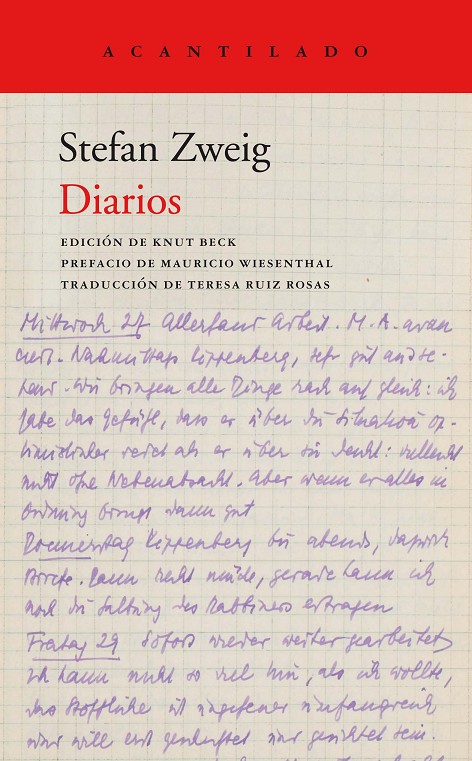 ACANTILADO
Stefan Zweig
Diarios
EDICIÓN DE KNUT BECK
PREFACIO DE MAURICIO WIESENTHAL
TRADUCCIÓN DE TERESA RUIZ ROSAS
Mittwoch 27 Allerhand Arbeit. M. A. avan
ciert. Nachmittags Kippenberg, sehr gut
Wir bringen alle Dinge rasch auf gleich: ich
habe das Gefühl, dass er über die Situation op-
timistischer als er über sie denkt: vielleicht
nicht ohne Nebenabsicht. Aber wenn er alles in
Ordnung bringt dann gut
Donnerstag Kippenberg bis abends, danach
Briefe. Dann recht müde, gerade kann ich
noch die des Rabbiners ertragen
Freitag 29 Sofort wieder weiter gearbeitet,
ich kann nicht so viel hin, als ich wollte,
das Stoffliche ist umfangreich
und will erst und gesichtet sein.